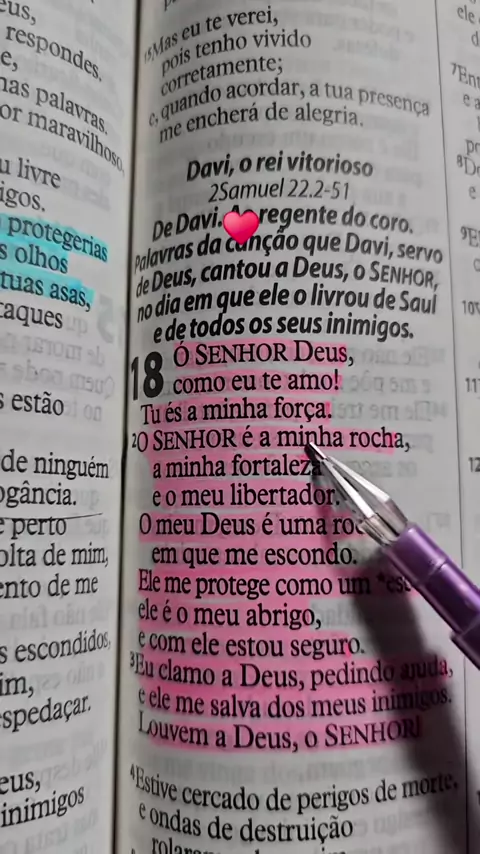 eus,
respondes.
e,
nas palavras.
or maravilhoso,
u livre
igos.
protegerias
s olhos
tuas asas,
taques
s estão
de ninguém
ogância.
e perto
olta de mim,
ento de me
s escondidos,
im,
spedaçar.
eus,
inimigos
15Mas eu te verei,
pois tenho vivido
corretamente;
e, quando acordar, a tua presença
me encherá de alegria.
Davi, o rei vitorioso
2Samuel 22.2-51
De Davi. regente do coro.
Palavras da canção que Davi, servo
de Deus, cantou a Deus, o SENHOR,
no dia em que ele o livrou de Saul
e de todos os seus inimigos.
18 Ó SENHOR Deus,
como eu te amo!
Tu és a minha força.
2O SENHOR é a minha rocha,
a minha fortaleza
e o meu libertador.
O meu Deus é uma
em que me escondo.
Ele me protege como um
ele é o meu abrigo,
e com ele estou seguro.
3Eu clamo a Deus, pedindo ajuda,
e ele me salva dos meus inimigos.
Louvem a Deus, o SENHOR!
4Estive cercado de perigos de morte,
e ondas de destruição
ele
7
e a
8
e
9
10
11
12